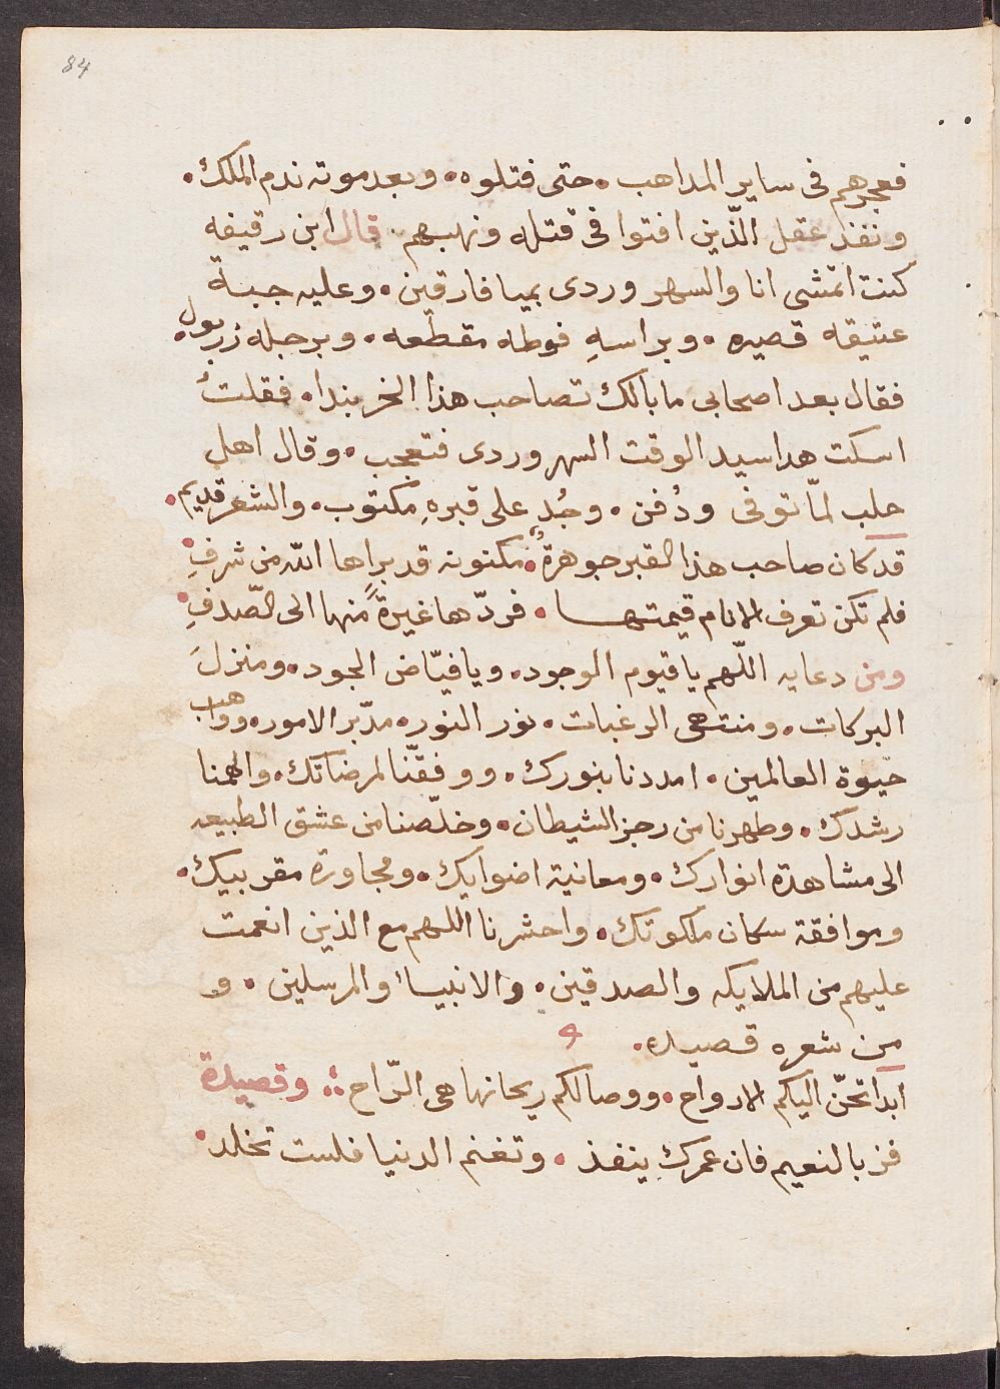 84
فعجزهم فى ساير المداهب • حتى قتلوه • وبعد موته ندم الملك •
ونفذ عقل الذّين افتوا فى قتله ونهبهم • قال ابن رقيقه
كنت اتمشى انا والسهروردى بميا فارقين • وعليه جبة
عتيقه قصيره • وبراسهِ فوطه مقطعه • وبرجله زربول •
فقال بعد اصحابى ما بالك تصاحب هذا الخربندا • فقلتُ
اسكت هدا سيد الوقت السهروردى فتعجب • وقال اهل
حلب لمّا توفى ودُفن • وجُد على قبرهِ مكتوب • والشعر قديم •
قد كان صاحب هذا القبر جوهرةً • مكنونه قد براها اللّه من شرفِ •
فلم تكن تعرف الانام قيمتها • فردّها غيرةً منها الى الصّدفِ •
ومن دعايه اللّهم يا قيوم الوجود • ويا فيّاض الجود • ومنزلَ
البركات • ومنتهى الرغبات • نور النور • مدّبر الامور • وواهب
حيوة العالمين • امددنا بنورك • ووفقّنا لمرضاتك • والهمنا
رشدك • وطهرنا من رجز الشيطان • وخلّصنا من عشق الطبيعه
الى مشاهدة انوارك • ومعانية اضوايك • ومجاورة مقربيك •
وموافقة سكان ملكوتك • واحشرنا اللهم مع الذين انعمت
عليهم من الملايكه والصدقين • والانبيا والمرسلين • و
من شعره قصيده •
ابدا تحنّ اليكم الارواح • ووصالكم ريحانها هى الرّاح ∴ وقصيدة
فز بالنعيم فان عمرك ينفذ • وتغنم الدنيا فلست تخلد •